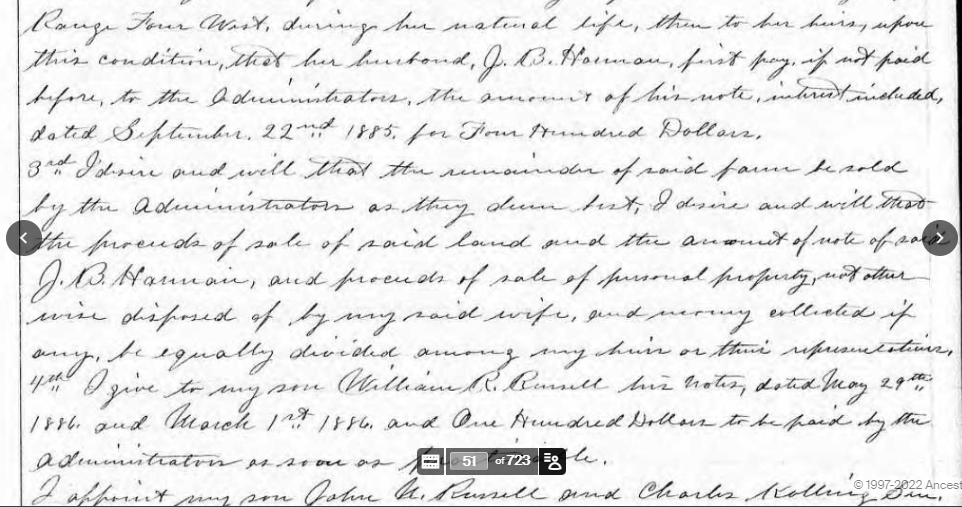 Range Four West, during her natural life, then to her heirs, upon
this condition, that her husband, J. B. Harman, first pay, if not paid
before, to the Administrators, the amount of his note, interest included,
dated September. 22nd 1885. for Four Hundred Dollars.
3rd I desire and will that the remainder of said farm be sold
by the Administrators as they deem best, I desire and will that
the proceeds of sale of said land and the amount of note of said
J. B. Harman, and proceeds of sale of personal property, not other
wise disposed of by my said wife, and money collected if
any, be equally divided among my heirs or their representatives.
4th I give to my son William R. Russell his notes, dated May 29th
1886. and March 1st 1886. and One Hundred Dollars to be paid by the
administrators as soon as
51 of 723
I appoint my son John N. Russell and Charles Sen.
© 1997-2022 Ancest